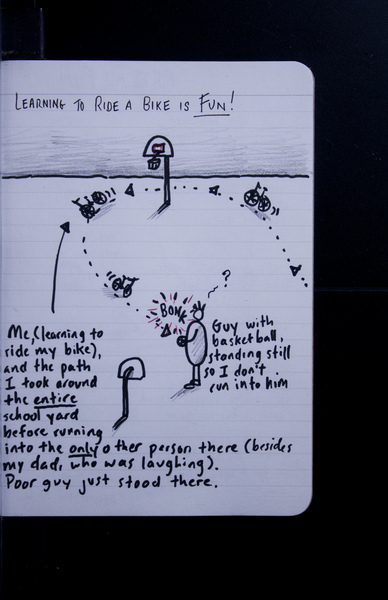 LEARNING TO RIDE A BIKE IS FUN!
?
BONK
Guy with
basketball,
standing still
so I don't
run into him
Me, (learning to
ride my bike),
and the path
I took around
the entire
school yard
before running
into the only other person there (besides
my dad, who was laughing).
Poor guy just stood there.